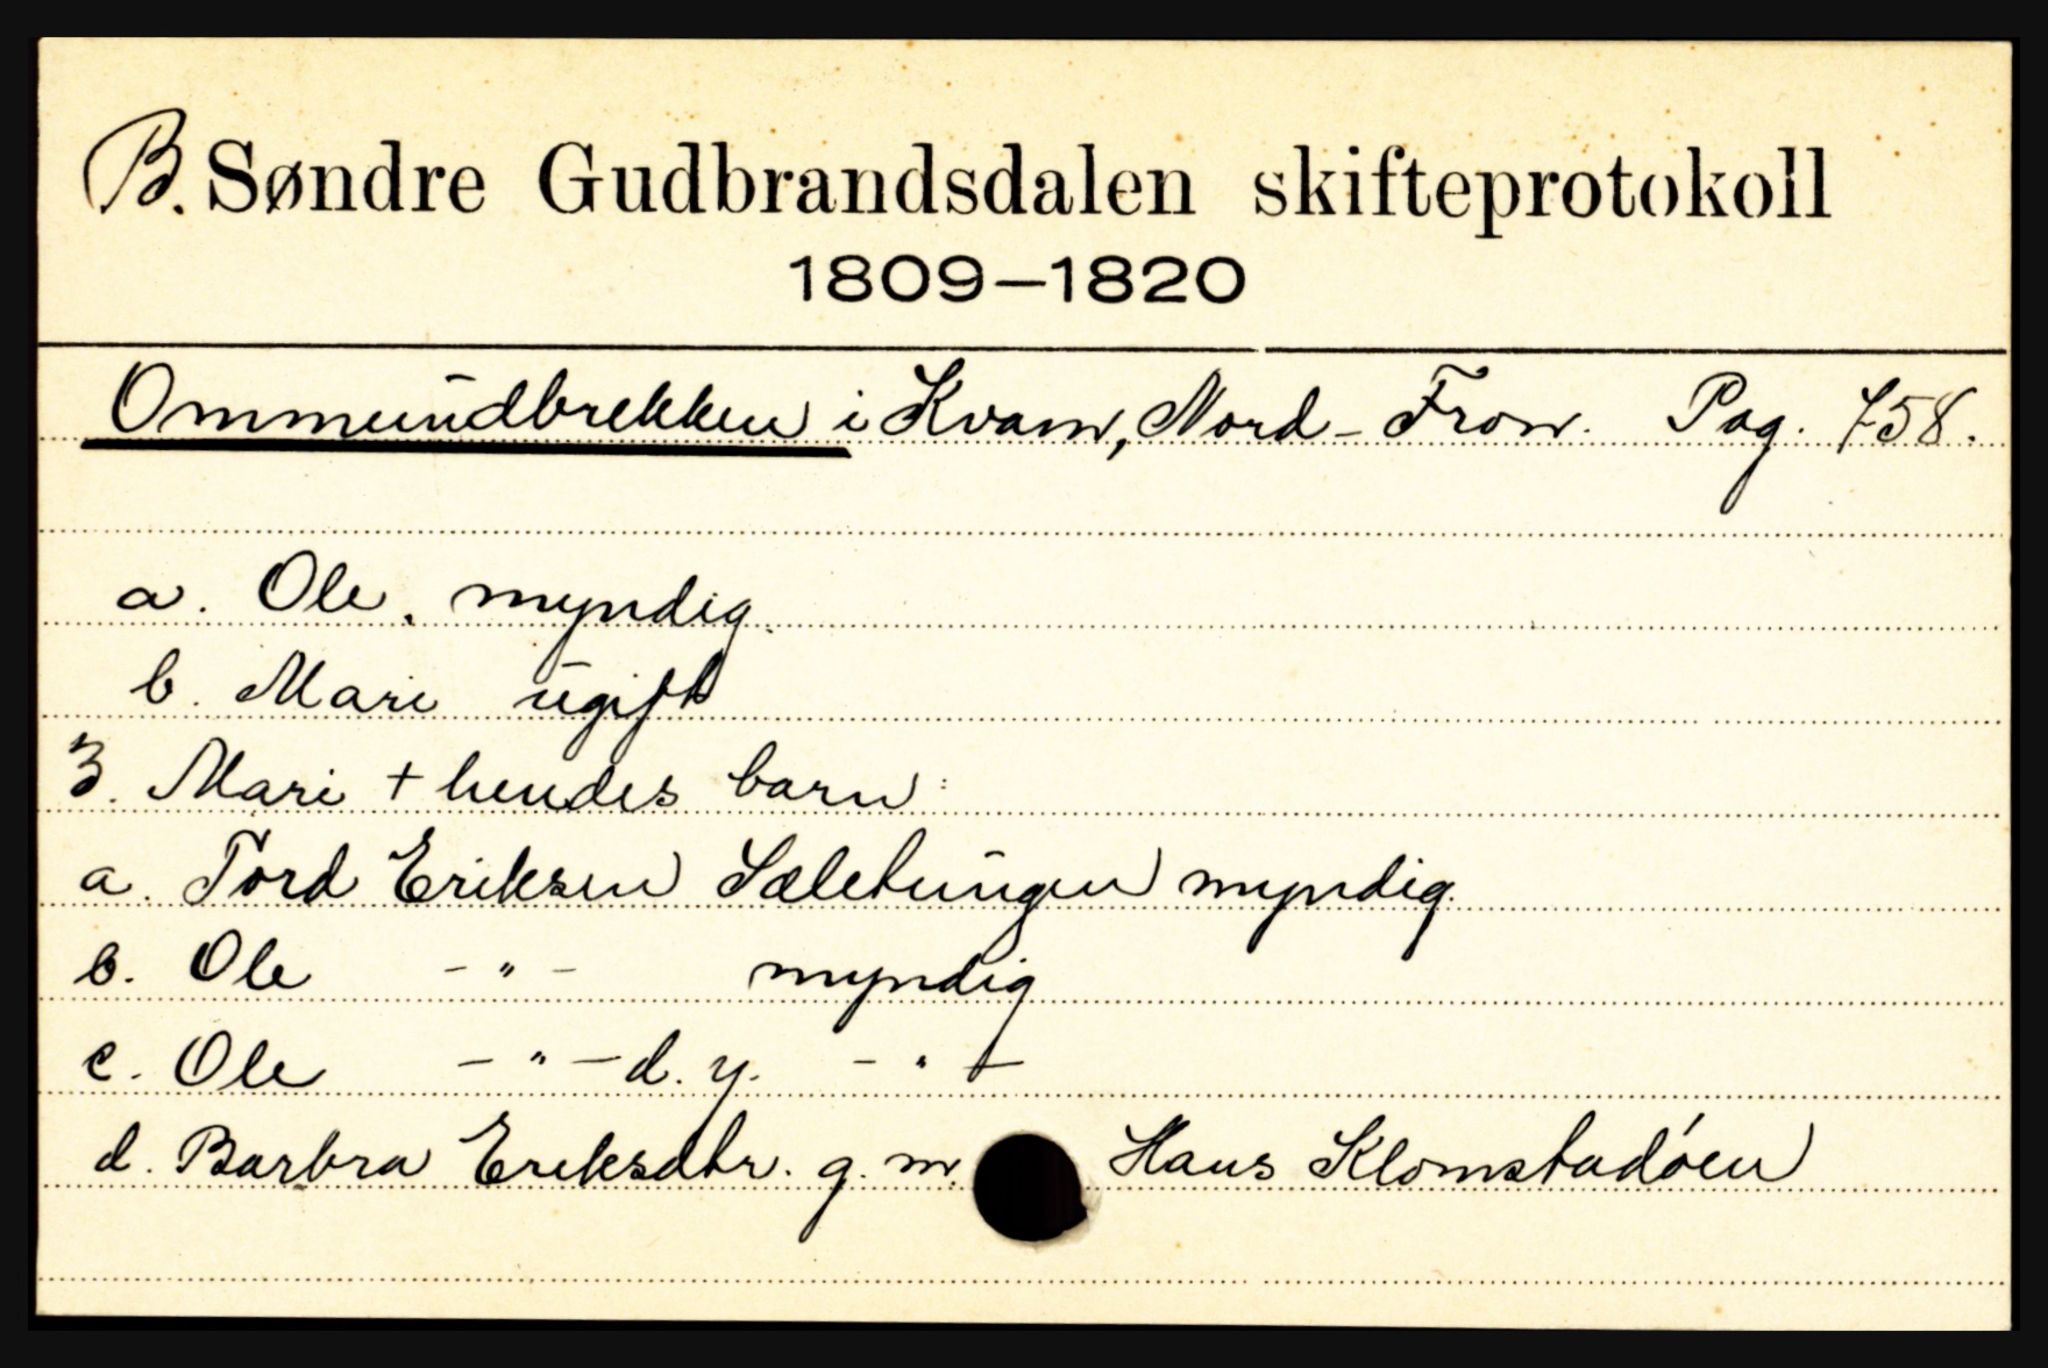 B. Søndre Gudbrandsdalen skifteprotokoll
1809–1820
Ommundbrekken i Kvam, Nord-Fron. Pag. 758.
a. Ole. myndig.
b. Mari ugift
3. Mari + hendes barn:
a. Tord Eriksen Sæletungen myndig.
b. Ole - " - myndig
c. Ole - " - d. y. - " -
d. Barbra Eriksdtr. g. m. Hans Klomstadøen